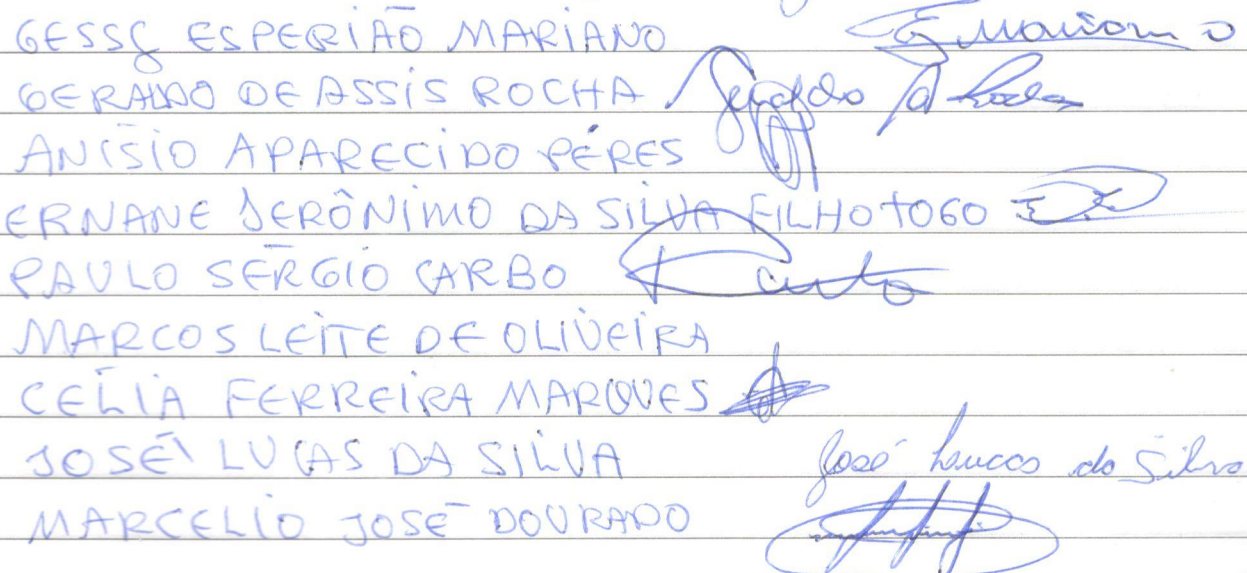 GESSÇ ESPERIÃO MARIANO
GERALDO DE ASSIS ROCHA Geraldo A Rocha
ANÍSIO APARECIDO PÉRES
ERNANE JERÔNIMO DA SILVA FILHO TOGO
PAULO SÉRGIO CARBO
MARCOS LEITE DE OLIVEIRA
CÉLIA FERREIRA MARQUES
JOSÉ LUCAS DA SILVA José Luccas da Silva
MARCELIO JOSÉ DOURADO